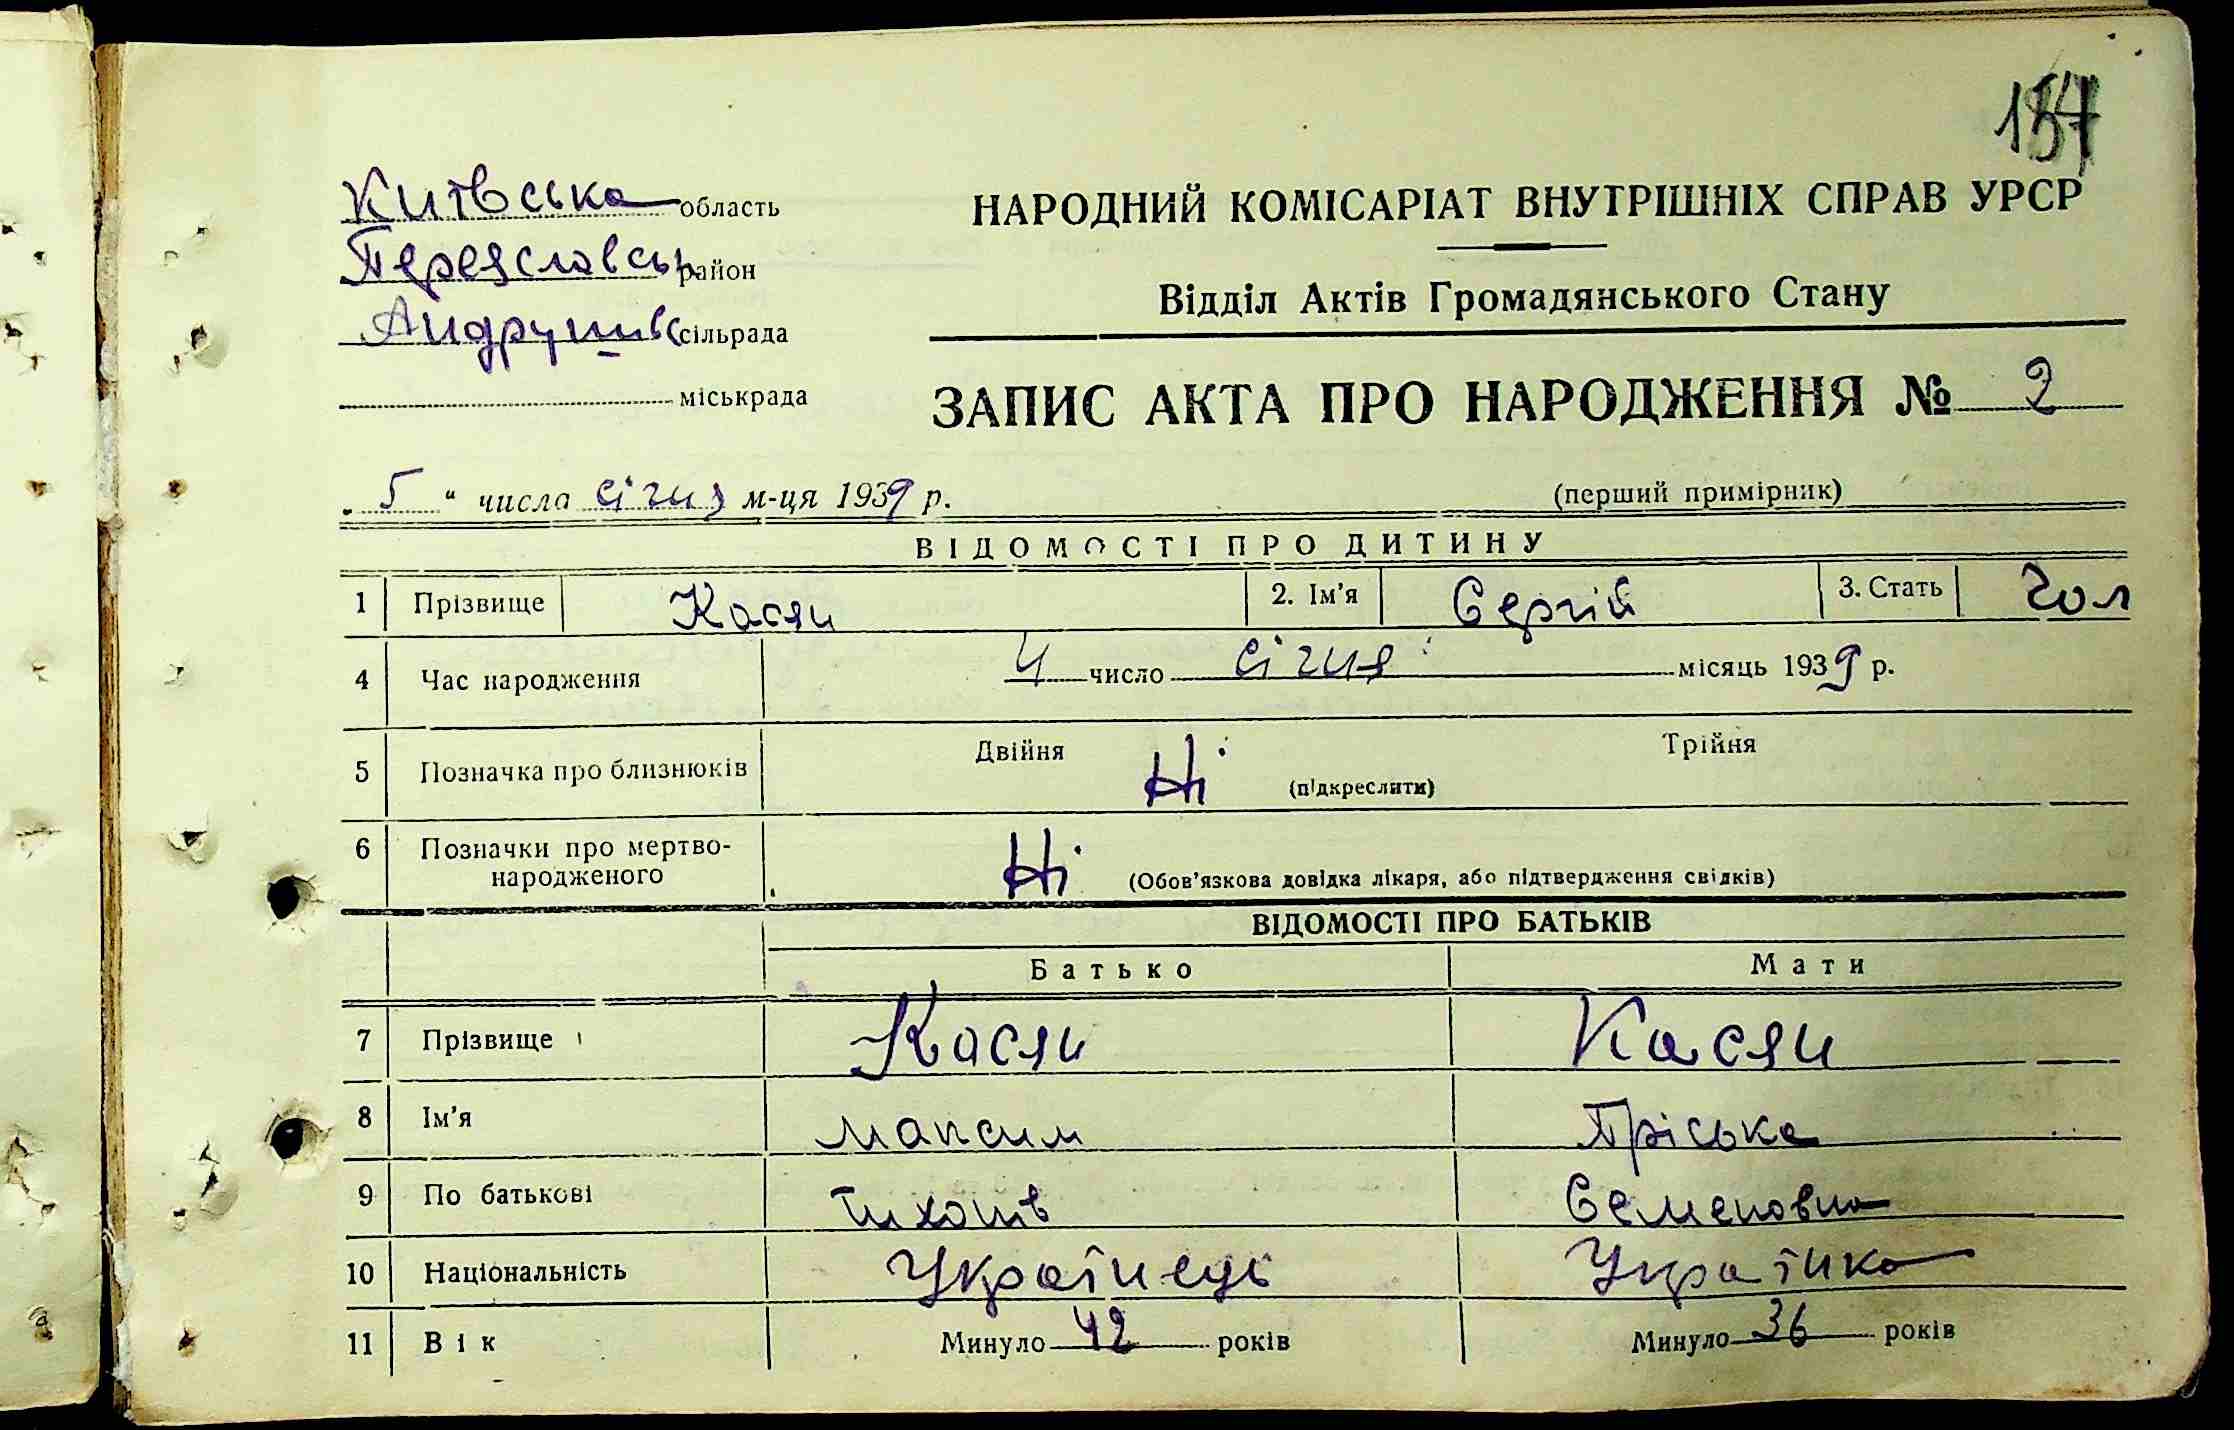 Київська область
Переяславськ район
Андрушівс сільрада
міськрада
НАРОДНИЙ КОМІСАРІАТ ВНУТРІШНІХ СПРАВ УРСР
Відділ Актів Громадянського Стану
ЗАПИС АКТА ПРО НАРОДЖЕННЯ № 2
„ 5 “ числа січня м-ця 1939 р.
(перший примірник)
ВІДОМОСТІ ПРО ДИТИНУ
1 Прізвище Касян 2. Ім'я Сергій 3. Стать Чол
4 Час народження 4 число січня місяць 1939 р.
5 Позначка про близнюків Двійня Ні (підкреслити) Трійня
6 Позначки про мертво-
народженого Ні (Обов'язкова довідка лікаря, або підтвердження свідків)
ВІДОМОСТІ ПРО БАТЬКІВ
Батько Мати
7 Прізвище Касян Касян
8 Ім'я Максим Пріська
9 По батькові Тихонів Семеновна
10 Національність Українець Українка
11 Вік Минуло 42 років Минуло 36 років